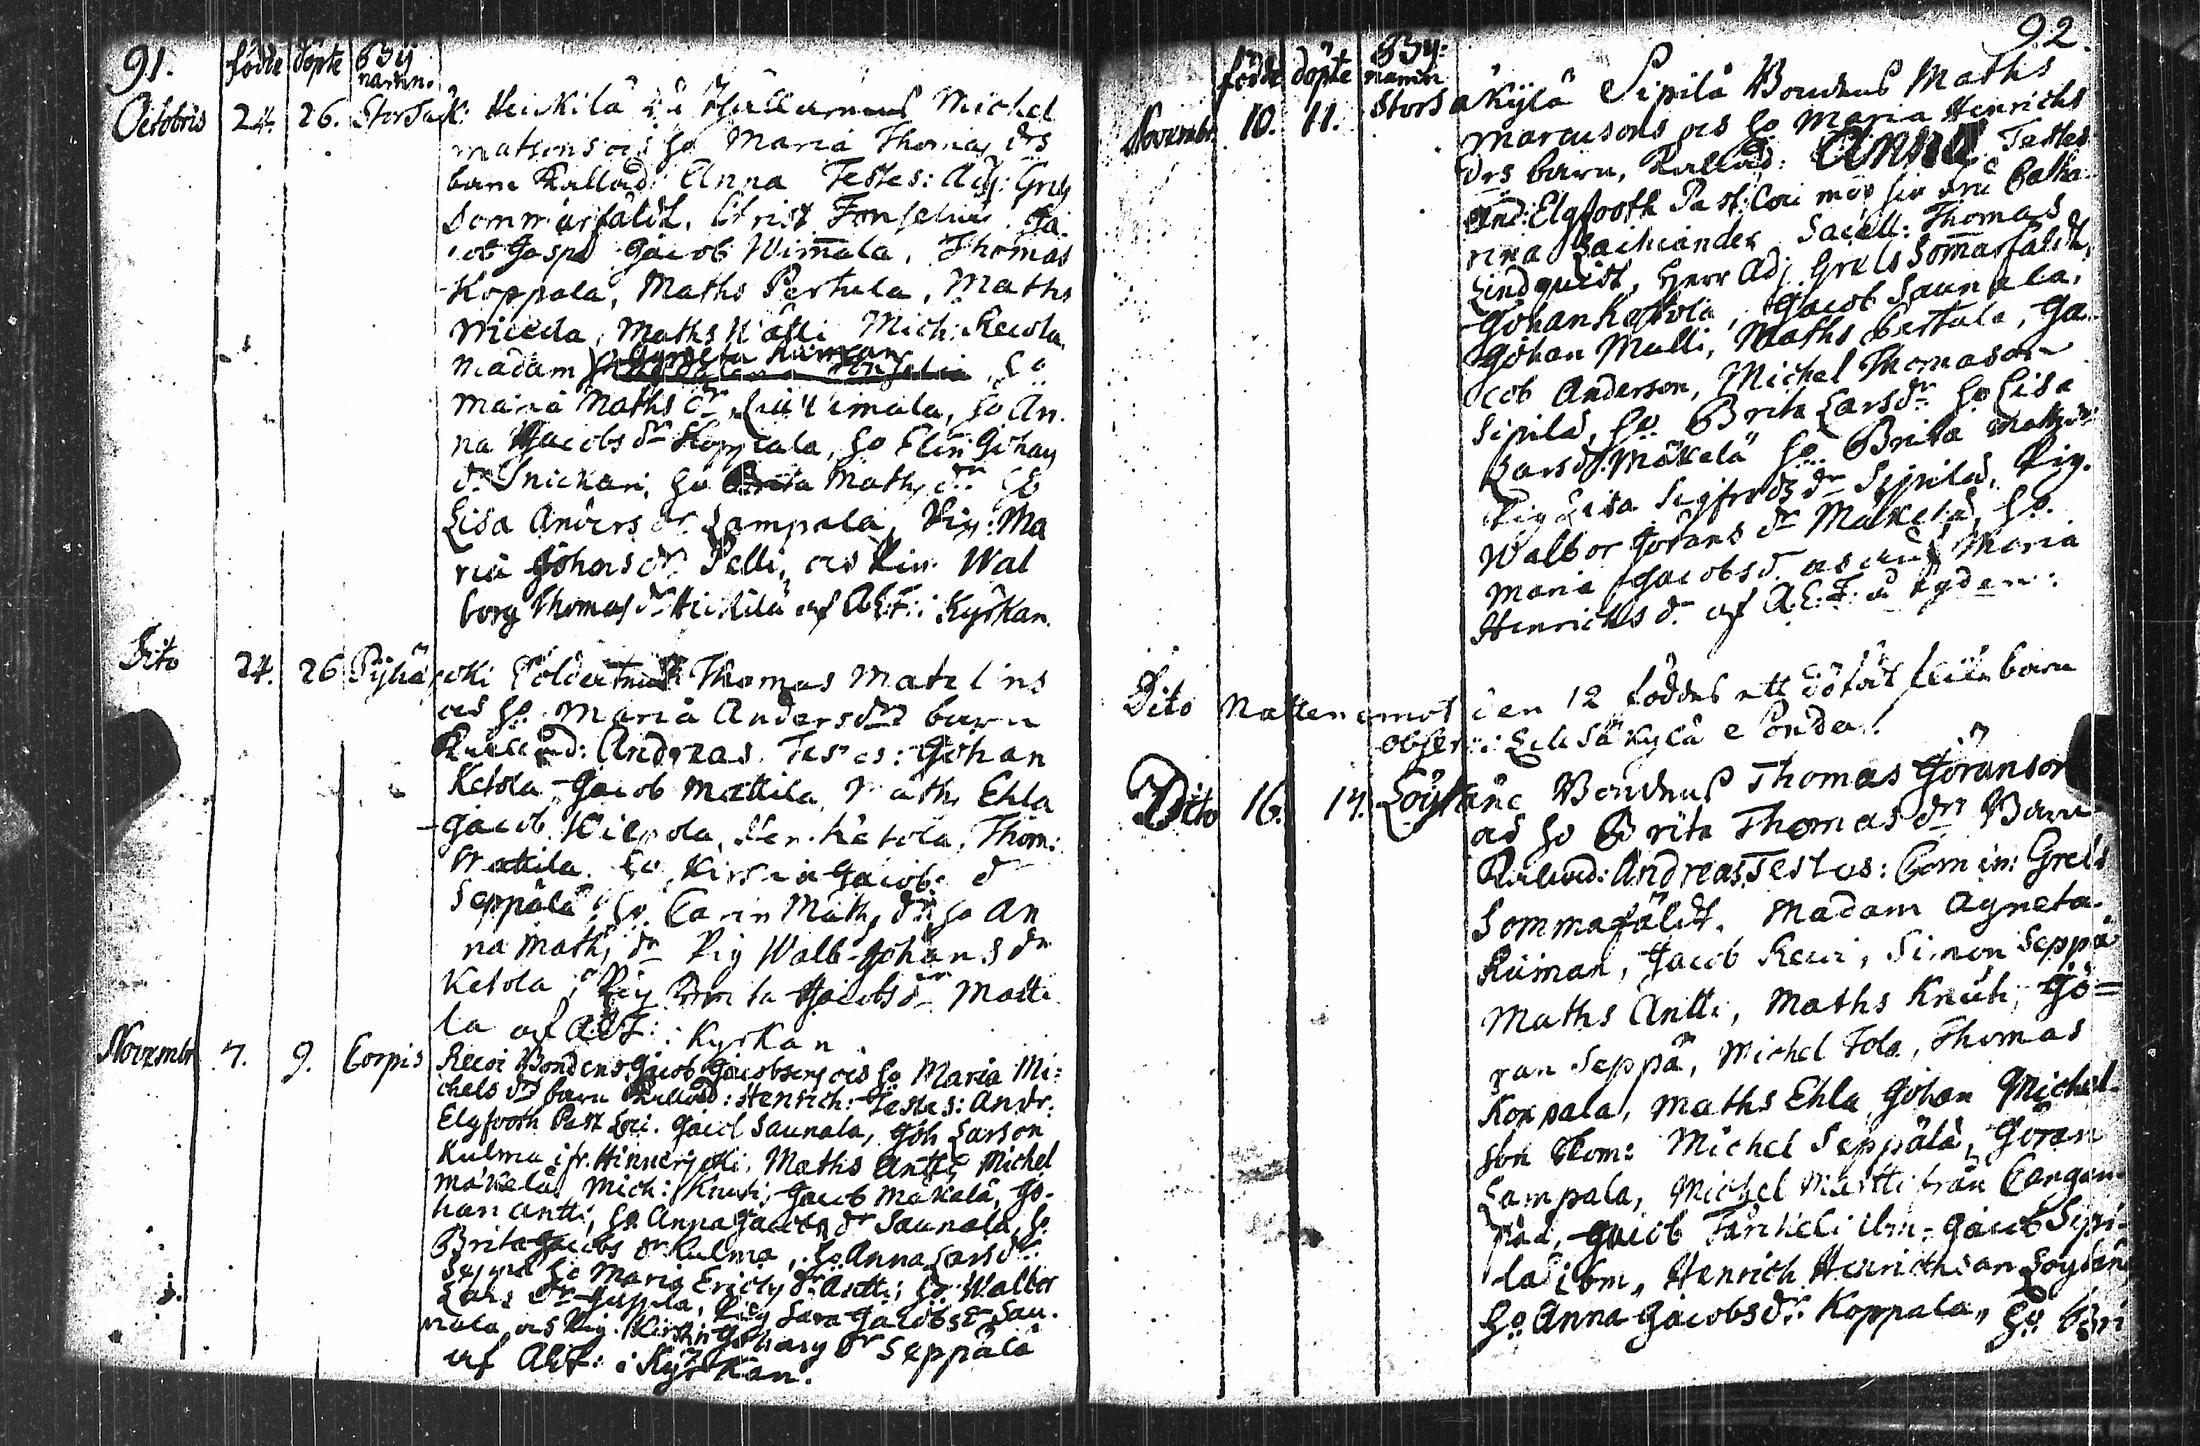 91.
födde döpte By
namn.
Octobris 24. 26. StorSäk: Heickilä Michel
matsons oc ho Maria Thomas drs
barn Kallad: Anna Testes: Adj: Grels
Sommarfäldt, Christ Fonselius Ja
cob Gasps Jacob Wim̄ala, Thomas
Koppala, Maths Pertula, Maths
Maths Mich: Recola
Madam Agneta Ruman ho
Maria Maths dr Wimala, ho An
na Jacobs dr Koppala, ho Elin Johans
dr Snickari, ho Brita Maths dr ho
Lisa Anders dr Lampala, Pig: Ma
ria Johans dr Pelli, oc Pig: Wal
borg Thomas dr Heickilä af A.E.F: i Kyrkan.
Dito 24. 26 Pyhäjocki Thomas Matzlins
ocs ho Maria Anders drs barn
Kallad: Andreas. Testes: Johan
Ketola Jacob Mattila, Maths Ehla
Jacob Wilpola, Hen. Ketola, Thom:
Mattila. ho Kirstin Jacobs d
Seppälä, ho Carin Maths dr ho An
na Maths dr Pig Walb. Johans dr
Ketola, Pig Brita Jacobs dr Matti
la af A.E.F: i Kyrkan
Novembr 7. 9. Corpis Recoi Bondens Jacob Jacobsons ocs ho Maria Mi-
chels drs barn Kallad: Henrich: Testes: Andr:
Elgfooth Past Loci. Jacob Saunala, Joh Larson
Kulma ifr. Hinnerjocki, Maths Antti, Michel
Mäkelä, Mich: Knuti, Jacob Mäkelä, Jo-
han Antti, ho Anna Jacobs dr Saunala, ho
Brita Jacobs dr Kulma, ho Anna Lars dr
Seppä ho Maria Erichs dr Antti, ho Walbor
Lars dr Pig Sara Jacobs dr Sau-
nala, ocs Pig. Kirstin Johans dr Seppälä
af A.E.F: i Kyrkan.
92.
födde döpte By:
namn
Novembr 10. 11. StorSäkylä Sipilä Bondens Maths
Marcusons ocs ho Maria Henrichs
drs barn, Kallad: Anna Testes
And: Elgfooth Past: Loci med sin fru Catha-
rina Sacell: Thomas
Lindquist, Herr Adj. Grels Som̄arfäldt,
Johan Ketola, Jacob Saunala,
Johan Malli, Maths Pertula, Ja-
cob Anderson, Michel Thomason
Sipilä, ho Brita Lars dr ho Lisa
Lars dr Mäkelä ho Brita Maths dr
Pig Lisa Sigfreds dr Sipilä, Pig.
Walbor Görans dr Mäkelä, ho.
Maria Jacobs dr Maria
Henrichs dr af A.E.F. å
Dito Natten emot den 12 föddes ett barn
observ: LillSäkylä
Dito 16. 17. Löytäne Bondens Thomas Göranson
ocs ho Brita Thomas drs Barn
Kallad: Andreas. Testes: Comin: Grels
Sommafäldt. Madam Agneta
Ruman, Jacob Recoi, Simon Seppä
Maths Antti, Maths Knuti, Gö=
ran Seppä, Michel Tola, Thomas
Koppala, Maths Ehla, Johan Michel-
son Thom: Michel Seppälä, Göran
Lampala, Michel Martti från
Jacob ibm, Jacob Sipi-
lä ibm, Henrich Henrichson Löytäne
ho Anna Jacobs dr Koppala, ho Bri